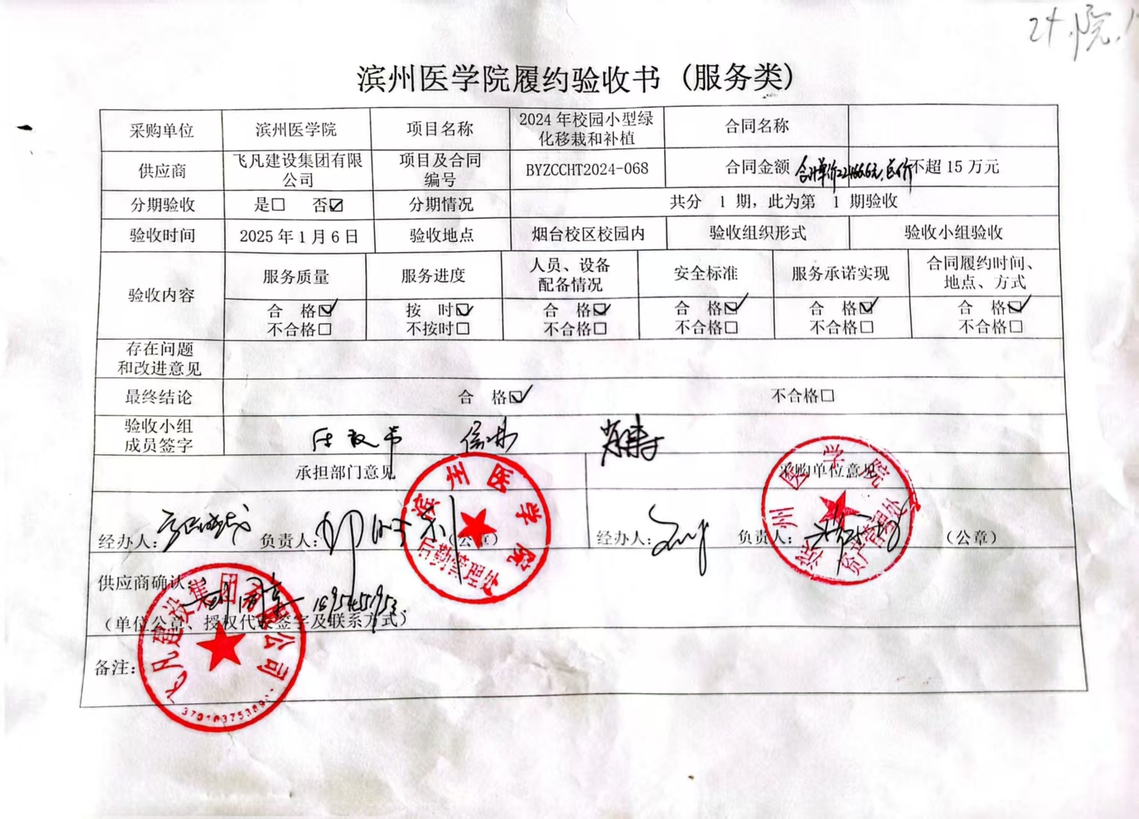 滨州医学院履约验收书（服务类）
采购单位 滨州医学院 项目名称 2024年校园小型绿化移栽和补植 合同名称
供应商 飞凡建设集团有限公司 项目及合同编号 BYZCCHT2024-068 合同金额 总价不超15万元
分期验收 是□ 否☑ 分期情况 共分 1 期，此为第 1 期验收
验收时间 2025年1月6日 验收地点 烟台校区校园内 验收组织形式 验收小组验收
验收内容 服务质量 服务进度 人员、设备配备情况 安全标准 服务承诺实现 合同履约时间、地点、方式
合 格☑ 按 时☑ 合 格☑ 合 格☑ 合 格☑ 合 格☑
不合格□ 不按时□ 不合格□ 不合格□ 不合格□ 不合格□
存在问题和改进意见
最终结论 合 格☑ 不合格□
验收小组成员签字
承担部门意见 采购单位意见
经办人： 负责人： （公章） 经办人： 负责人： （公章）
滨州医学院
后勤管理处
滨州医学院
资产管理处
供应商确认：
（单位公章、授权代表签字及联系方式）
飞凡建设集团有限公司
备注：